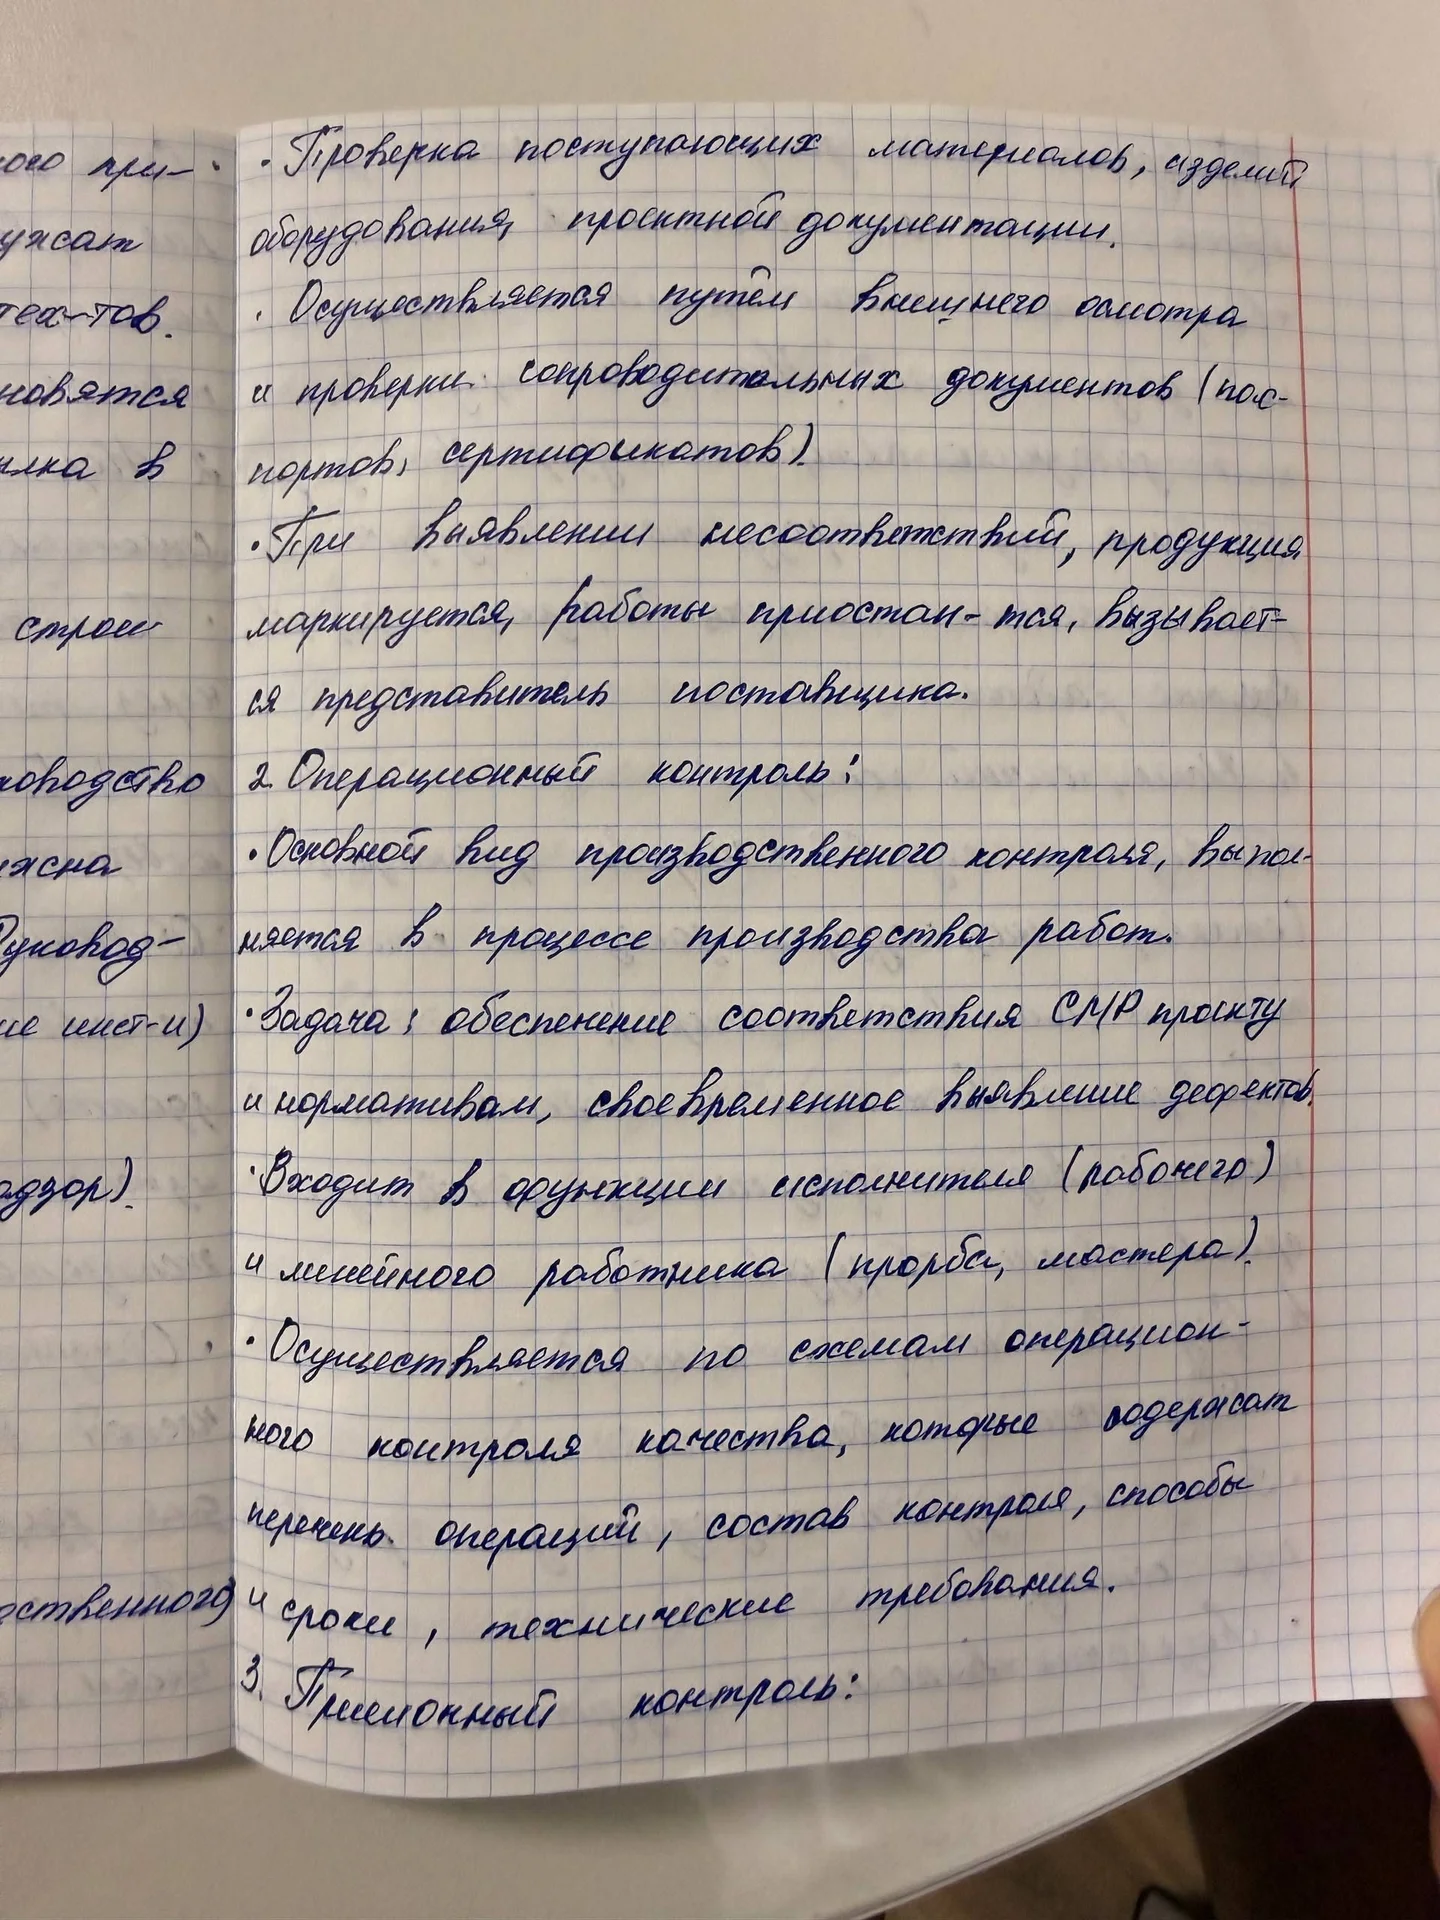 ого при-
ужат
тех-тов.
новятся
лка в
строи
ководство
жна
Руковод-
ие инст-и)
адзор).
дственного)
· Проверка поступающих материалов, изделий
оборудования, проектной документации.
· Осуществляется путём внешнего осмотра
и проверки сопроводительных документов (пас-
портов, сертификатов).
· При выявлении несоответствий, продукция
маркируется, работы приостан-тся, вызывает-
ся представитель поставщика.
2. Операционный контроль:
· Основной вид производственного контроля, выпол-
няется в процессе производства работ.
· Задача: обеспечение соответствия СМР проекту
и нормативам, своевременное выявление дефектов.
· Входит в функции исполнителя (рабочего)
и линейного работника (прораба, мастера).
· Осуществляется по схемам операцион-
ного контроля качества, которые содержат
перечень операций, состав контроля, способы
и сроки, технические требования.
3. Приемочный контроль: